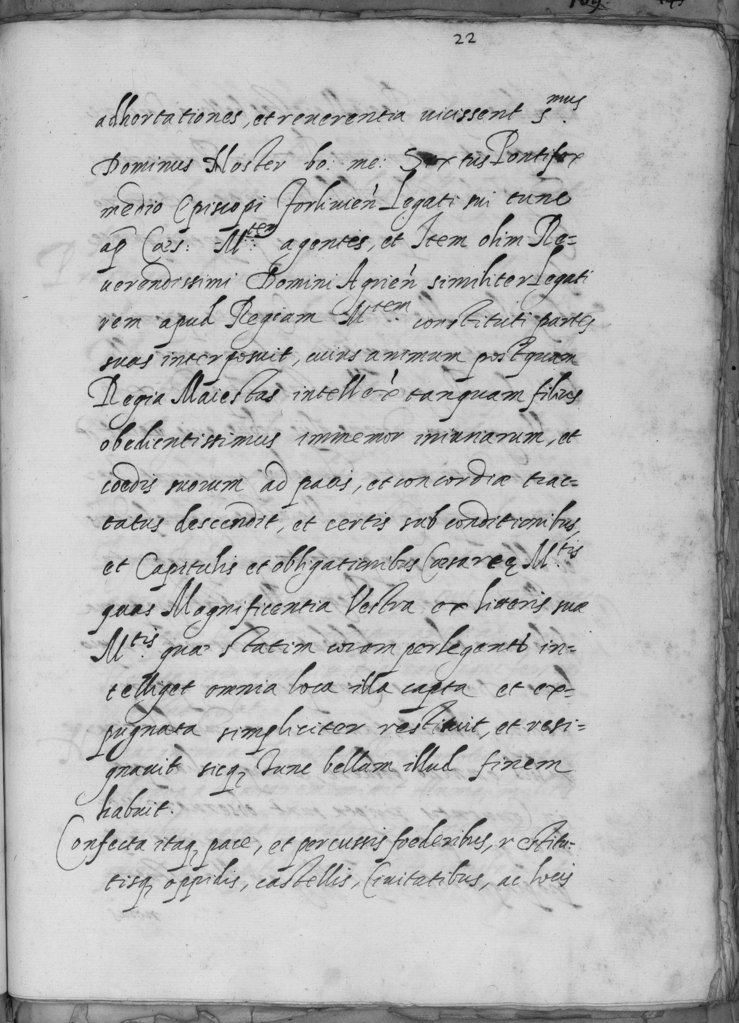 22
adhortationes, et reuerentia uicissent S.mus
Dominus Noster bo: me: Sixtus Pontifex
medio Episcopi Forliuien̄ Legati sui tunc
ap̄ Cæs: M.tem agentis, et Item olim Re=
uerendissimi Domini Agrien̄ similiter Legati
rem apud Regiam M.tem constituti partes
suas interposuit, cuius animum postquam
Regia Maiestas intellexit tanquam filius
obedientissimus immemor iniuriarum, et
cœdis suorum ad pacis, et concordiæ trac=
tatus descendit, et certis sub conditionibus
et Capitulis et obligationibus Cæsareę M.tis
quas Magnificentia Vestra ex literis suæ
M.tis quas statim coram perlegenti in=
telliget omnia loca illa capta et ex=
pugnata simpliciter restituit, et resi=
gnauit sicq₃ tunc bellum illud finem
habuit.
Confecta itaq₃ pace, et percussis foederibus, restitu=
tisq₃ oppidis, castellis, Ciuitatibus, ac locis